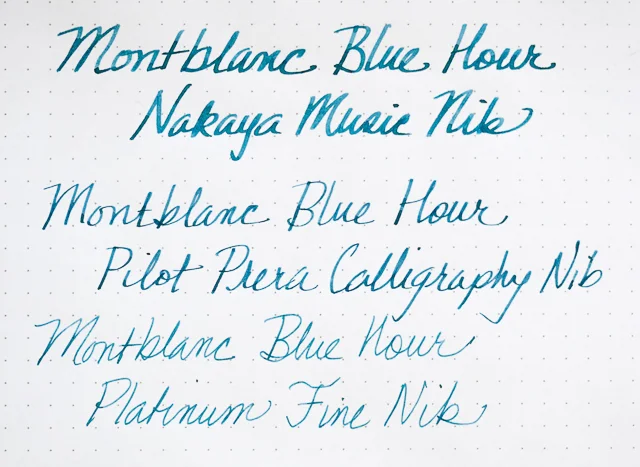 Montblanc Blue Hour
Nakaya Music Nib
Montblanc Blue Hour
Pilot Prera Calligraphy Nib
Montblanc Blue Hour
Platinum Fine Nib